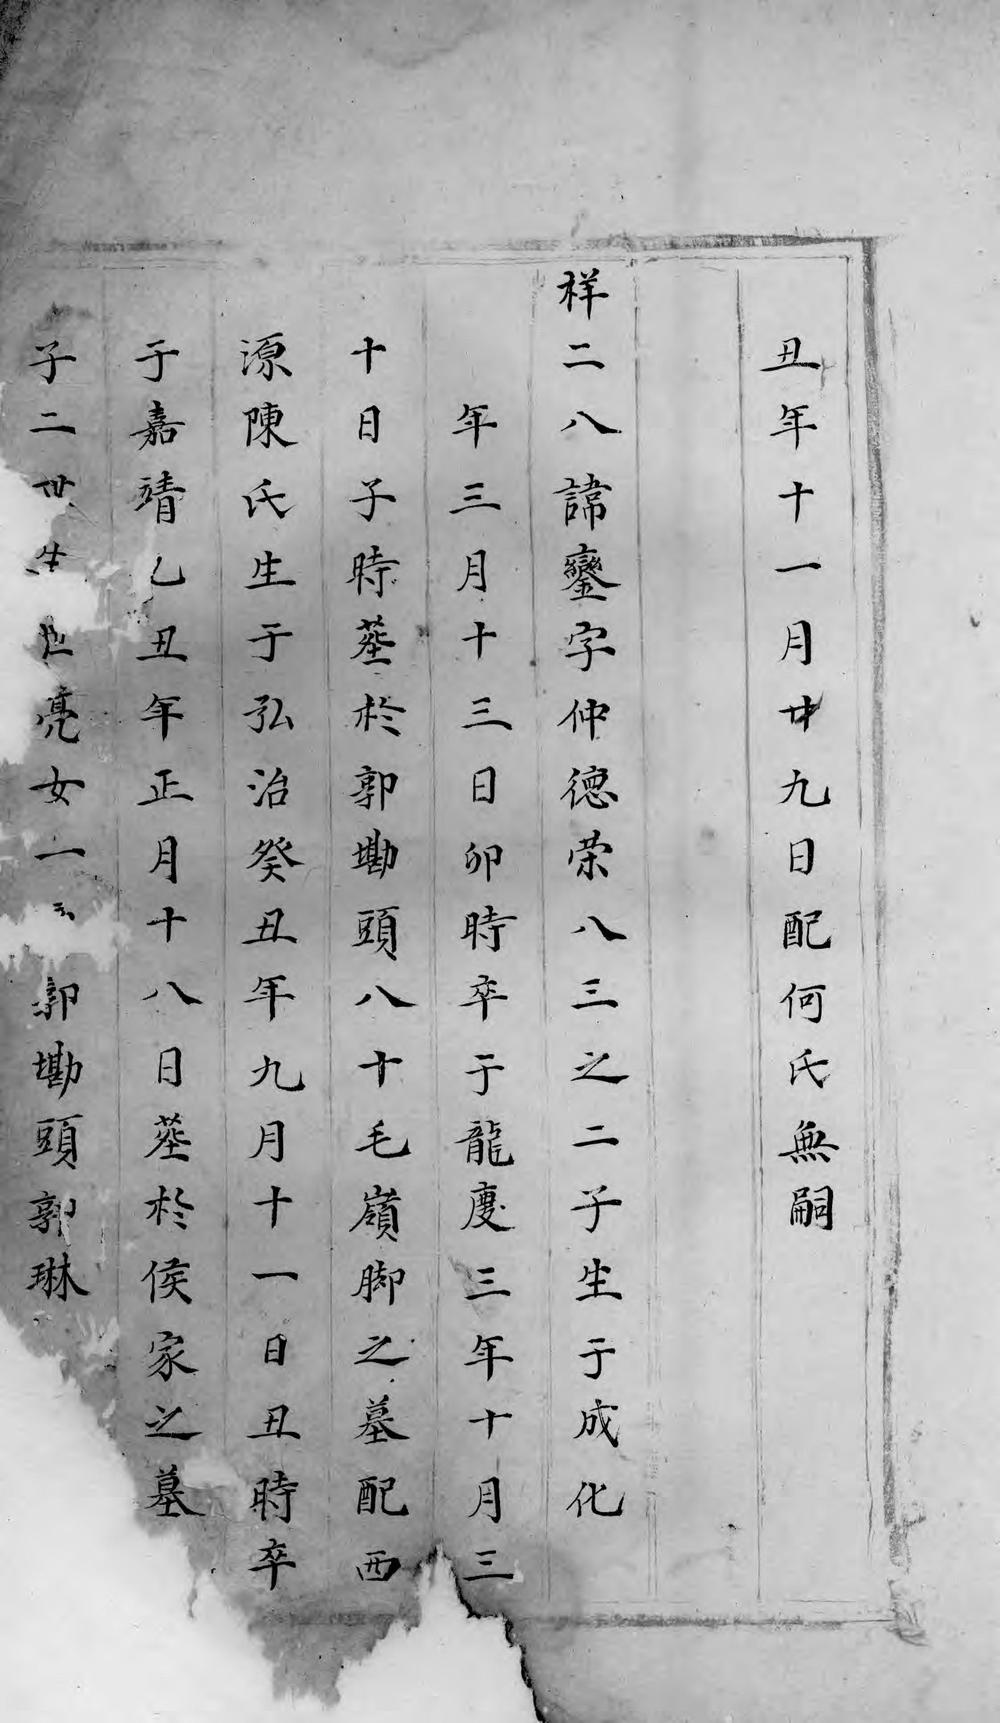 丑年十一月廿九日配何氏無嗣
样二八諱鑾字仲德荣八三之二子生于成化
年三月十三日卯時卒于龍慶三年十月三
十日子時塟於郭墈頭八十毛嶺脚之墓配西
源陳氏生于弘治癸丑年九月十一日丑時卒
于嘉靖乙丑年正月十八日塟於侯家之墓
子二世亮女一郭墈頭郭琳